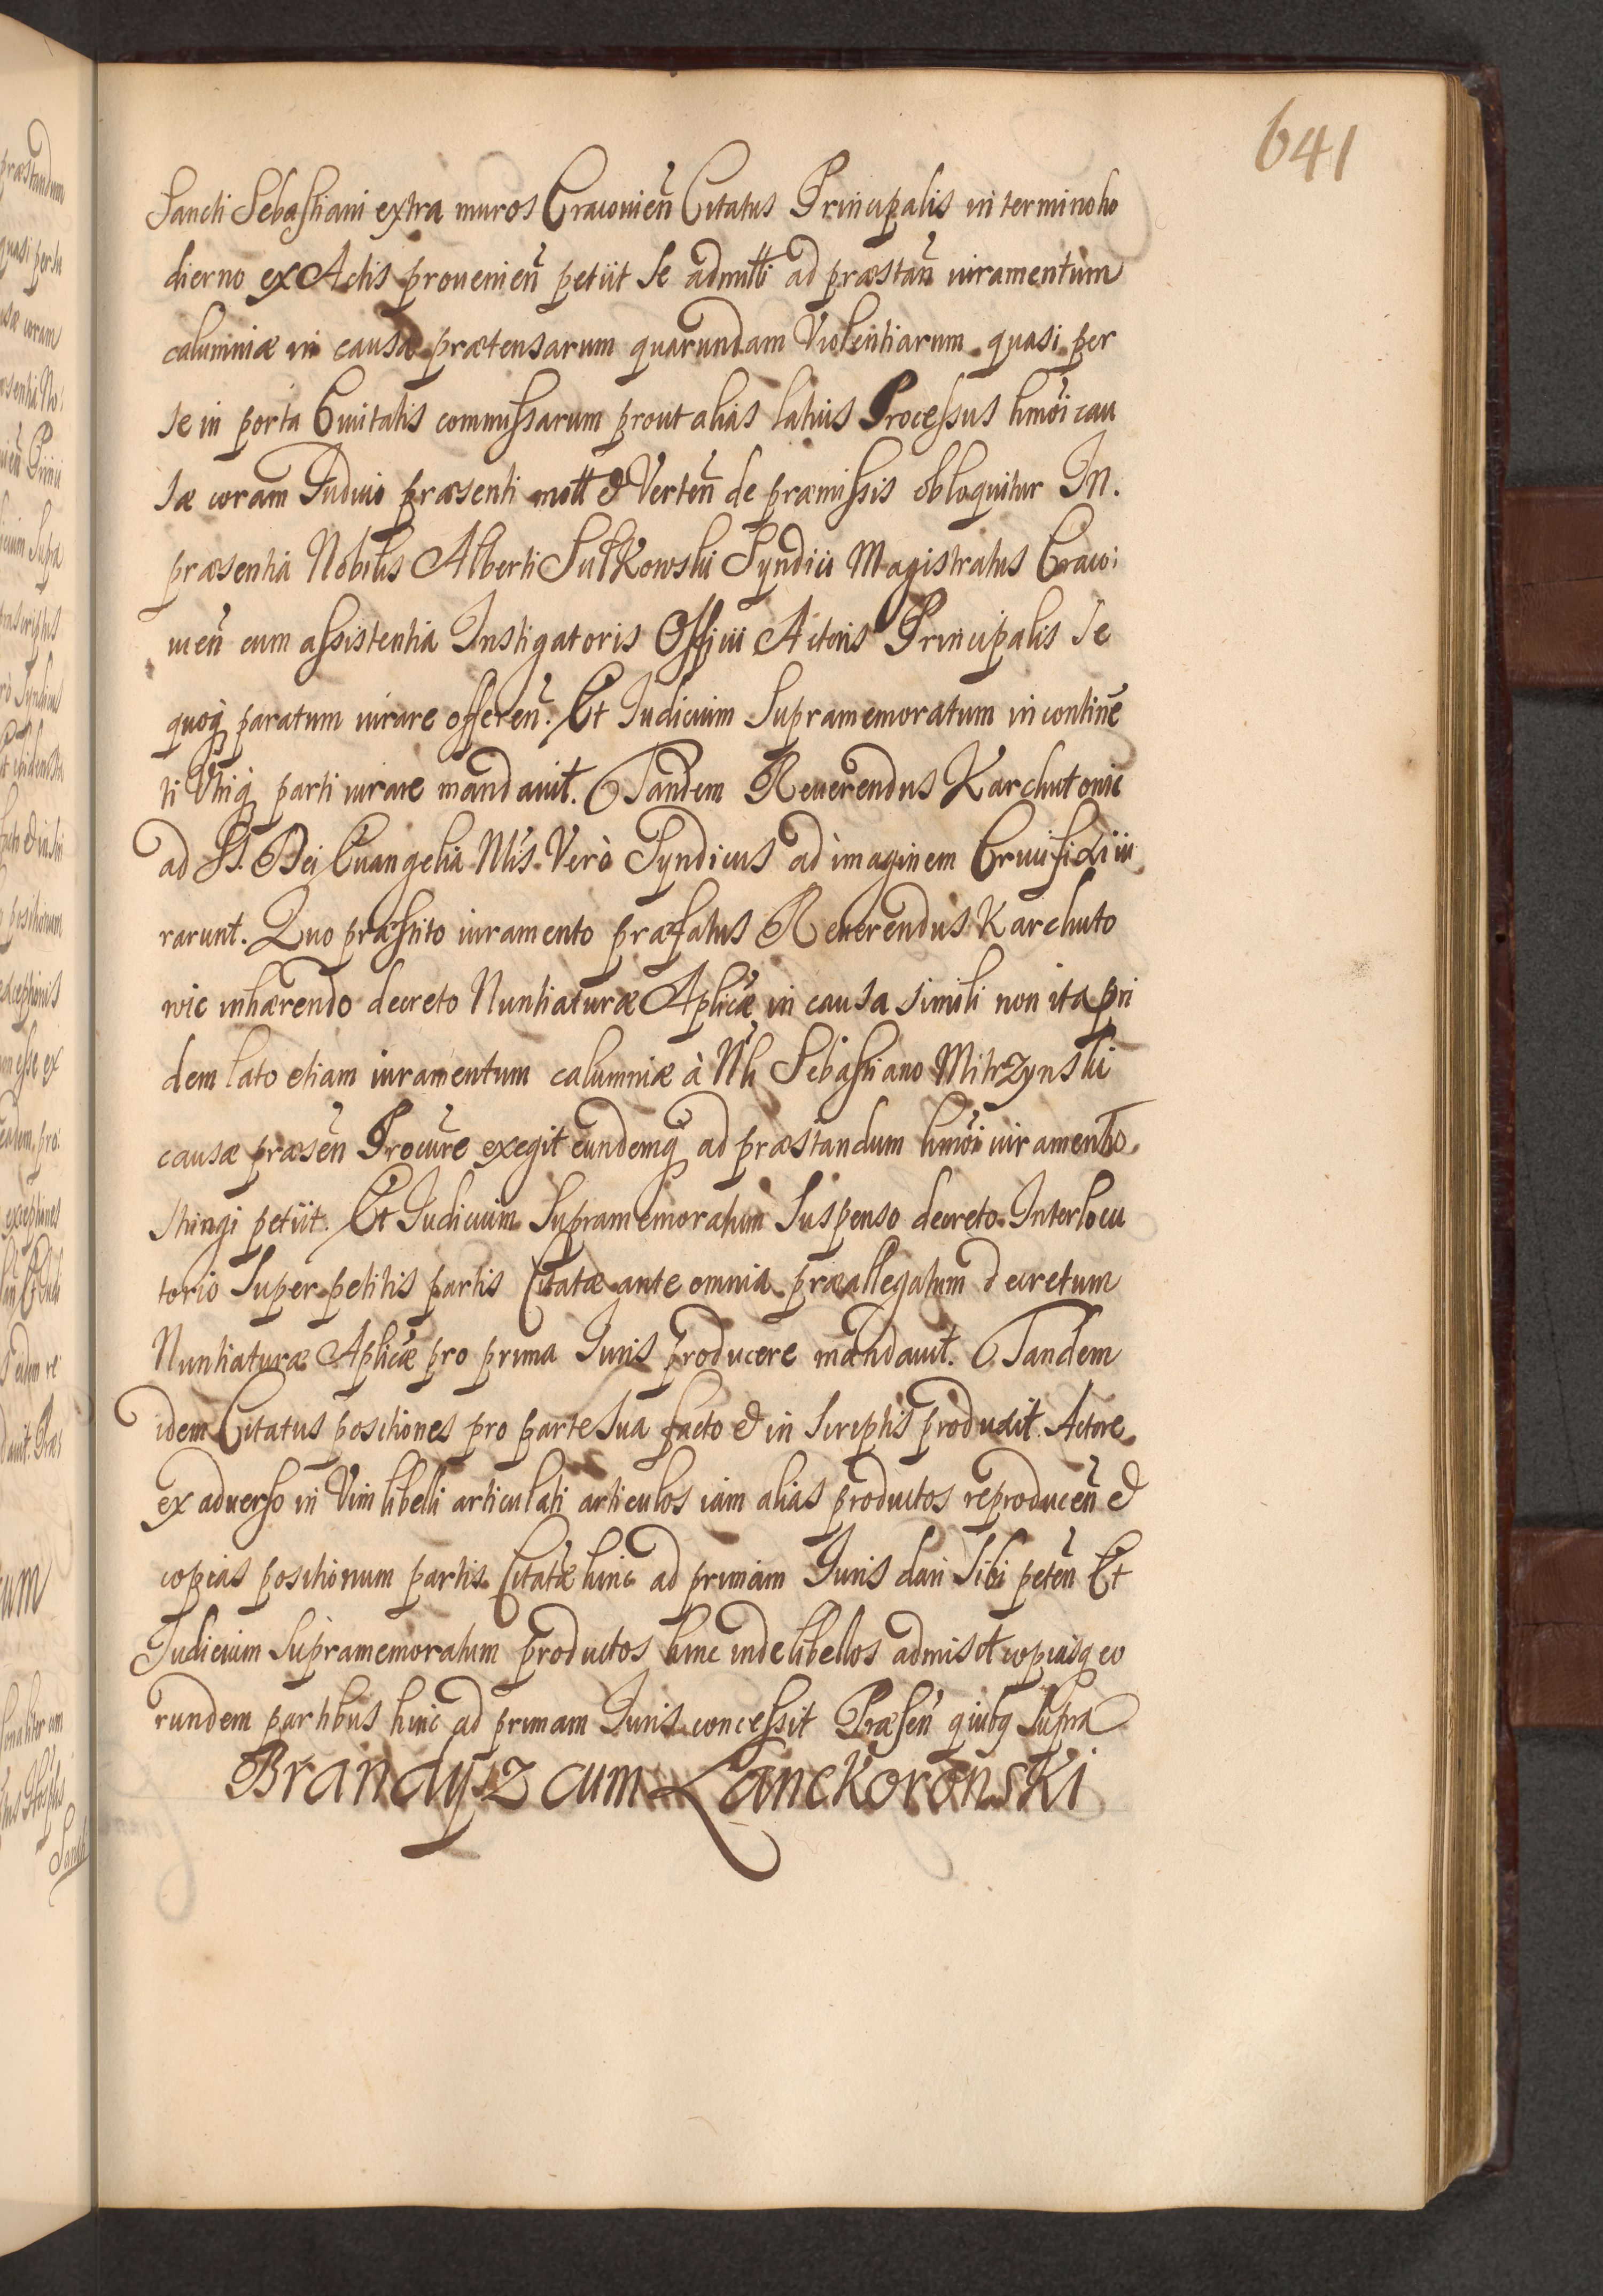 641
Sancti Sebastiani extra muros Cracouien̄ Citatus Principalis in termino ho
dierno ex Actis prouenien̄ petiit se admitti ad præstan̄ iuramentum
calumniæ in causa prætensarum quarundam Violentiarum quasi per
se in porta Ciuitatis commissarum prout alias latius Processus hmōi cau
sæ coram Iudicio præsenti mott & Verten̄ de præmissis obloquitur In.
præsentia Nobilis Alberti Sułkowski Syndici Magistratus Craco:
uien̄ cum assistentia Instigatoris Officii Actoris Principalis se
quoq paratum iurare offeren̄. Et Iudicium Supramemoratum in continē
ti Vtriq parti iurare mandauit. Tandem Reuerendus Karchutowic
ad SS. Dei Euangelia Nlis Verò Syndicus ad imaginem Crucifixi iu
rarunt. Quo præstito iuramento præfatus Reuerendus Karchuto
wic inhærendo decreto Nuntiaturæ Aplicæ in causa simili non ita pri
dem lato etiam iuramentum calumniæ à Nli Sebastiano Mitrzynski
causæ præsen̄ Procure exegit eundemq ad præstandum hmōi iuramento
stringi petiit. Et Iudicium Supramemoratum Suspenso decreto Interlocu
torio Super petitis partis Citatæ ante omnia præallegatum decretum
Nuntiaturæ Aplicæ pro prima Iuris producere mandauit. Tandem
idem Citatus positiones pro parte sua facto & in Scriptis produxit. Actore
ex aduerso in Vim libelli articulati articulos iam alias productos reproducen̄ &
copias positionum partis Citatæ hinc ad primam Iuris dari Sibi peten̄ Et
Iudicium Supramemoratum productos hinc inde libellos admisit copiasq eo
rundem partibus hinc ad primam Iuris concessit Præsen̄ quibq Supra
Brandysz cum Lanckoronski